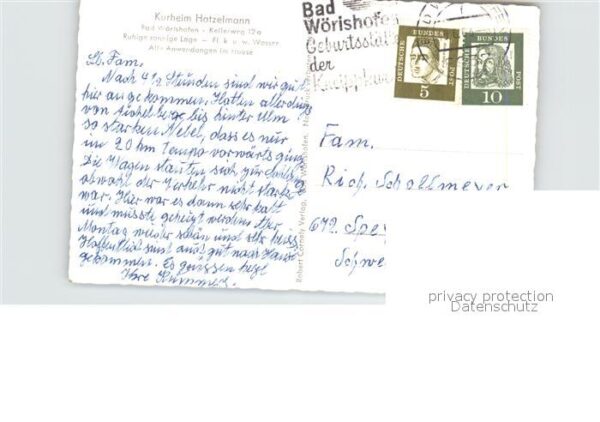 Kurheim Hatzelmann
Bad Wörishofen - Kellerweg 12a
Ruhige sonnige Lage - Fl. k. u. w. Wasser
Alle Anwendungen im Hause
Lb. Fam.
Nach 4½ Stunden sind wir gut
hier angekommen. Hatten allerdings
von bis hinter Ulm
so starken Nebel, dass es nur
im 20 km Tempo vorwärts ging.
Die Wagen stauten sich
obwohl der Verkehr nicht stark
war. Hier war es dann sehr kalt
und musste geheizt werden. Aber
Montag wieder schön und sehr heiss.
Hoffentlich sind auch gut nach Hause
gekommen. Es grüssen
Ihre
Bad
Wörishofen
Geburtsstätte
der
DEUTSCHE BUNDESPOST
5
DEUTSCHE BUNDESPOST
10
Robert Connoly Verlag, Wörishofen,
Fam.
Rich. Schallmeyer
672 Spey
Schwe
privacy protection
Datenschutz